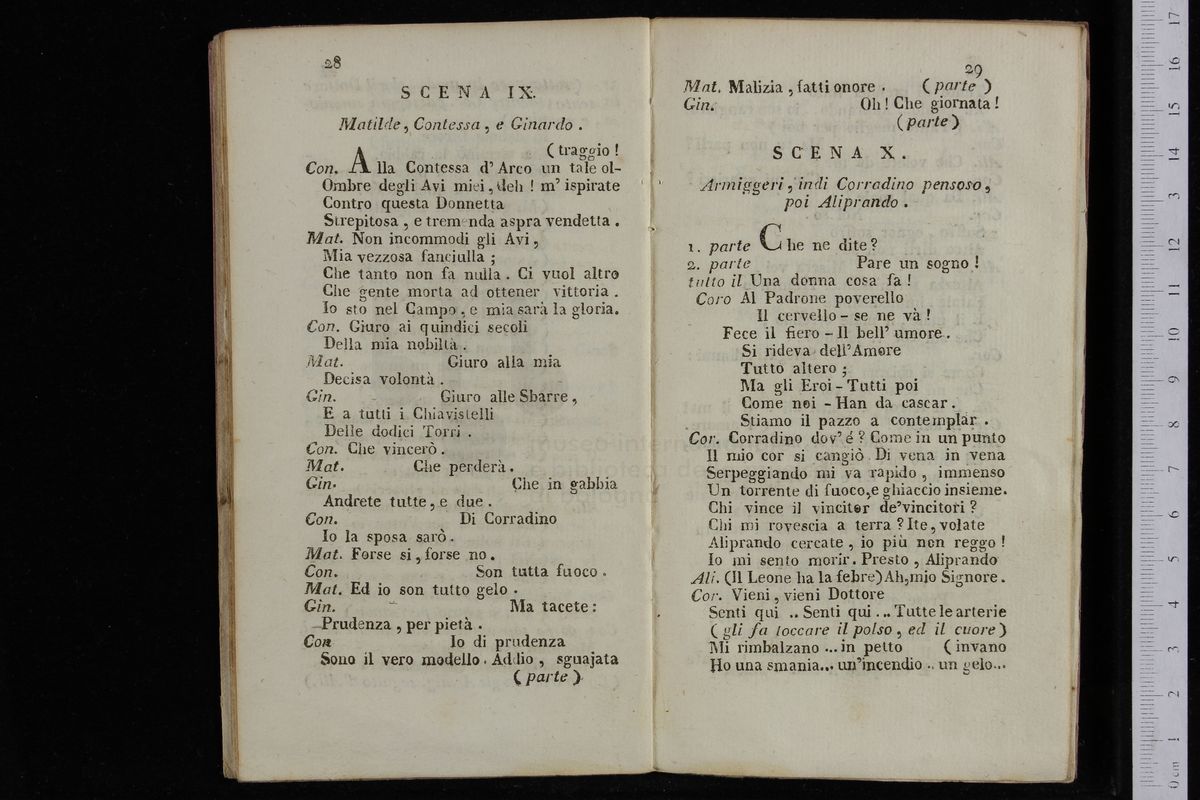 28
SCENA IX.
Matilde, Contessa, e Ginardo.
(traggio!
Con. Alla Contessa d'Arco un tale ol-
Ombre degli Avi miei, deh! m'ispirate
Contro questa Donnetta
Strepitosa, e tremenda aspra vendetta.
Mat. Non incommodi gli Avi,
Mia vezzosa fanciulla;
Che tanto non fa nulla. Ci vuol altro
Che gente morta ad ottener vittoria.
Io sto nel Campo, e mia sarà la gloria.
Con. Giuro ai quindici secoli
Della mia nobiltà.
Mat. Giuro alla mia
Decisa volontà.
Gin. Giuro alle Sbarre,
E a tutti i Chiavistelli
Delle dodici Torri.
Con. Che vincerò.
Mat. Che perderà.
Gin. Che in gabbia
Andrete tutte, e due.
Con. Di Corradino
Io la sposa sarò.
Mat. Forse si, forse no.
Con. Son tutta fuoco.
Mat. Ed io son tutto gelo.
Gin. Ma tacete:
Prudenza, per pietà.
Con Io di prudenza
Sono il vero modello. Addio, sguajata
(parte)
29
Mat. Malizia, fatti onore. (parte)
Gin. Oh! Che giornata!
(parte)
SCENA X.
Armiggeri, indi Corradino pensoso,
poi Aliprando.
1. parte Che ne dite?
2. parte Pare un sogno!
tutto il Una donna cosa fa!
Coro Al Padrone poverello
Il cervello - se ne và!
Fece il fiero - Il bell' umore.
Si rideva dell'Amore
Tutto altero;
Ma gli Eroi - Tutti poi
Come noi - Han da cascar.
Stiamo il pazzo a contemplar.
Cor. Corradino dov'é? Come in un punto
Il mio cor si cangiò. Di vena in vena
Serpeggiando mi va rapido, immenso
Un torrente di fuoco, e ghiaccio insieme.
Chi vince il vincitor de'vincitori?
Chi mi rovescia a terra? Ite, volate
Aliprando cercate, io più non reggo!
Io mi sento morir. Presto, Aliprando
Ali. (Il Leone ha la febre) Ah, mio Signore.
Cor. Vieni, vieni Dottore
Senti qui .. Senti qui ... Tutte le arterie
(gli fa toccare il polso, ed il cuore)
Mi rimbalzano ... in petto (invano
Ho una smania... un'incendio .. un gelo...
museo internazionale
e biblioteca della musica
di bologna
0 cm 1 2 3 4 5 6 7 8 9 10 11 12 13 14 15 16 17